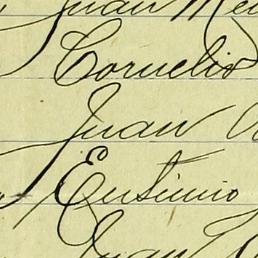 Juan Me
Cornelio
Juan
Eusimio
Juan